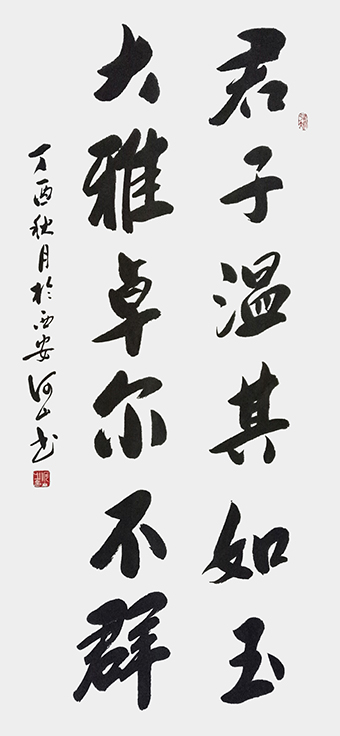 君子温其如玉
大雅卓尔不群
丁酉秋月于西安河山书